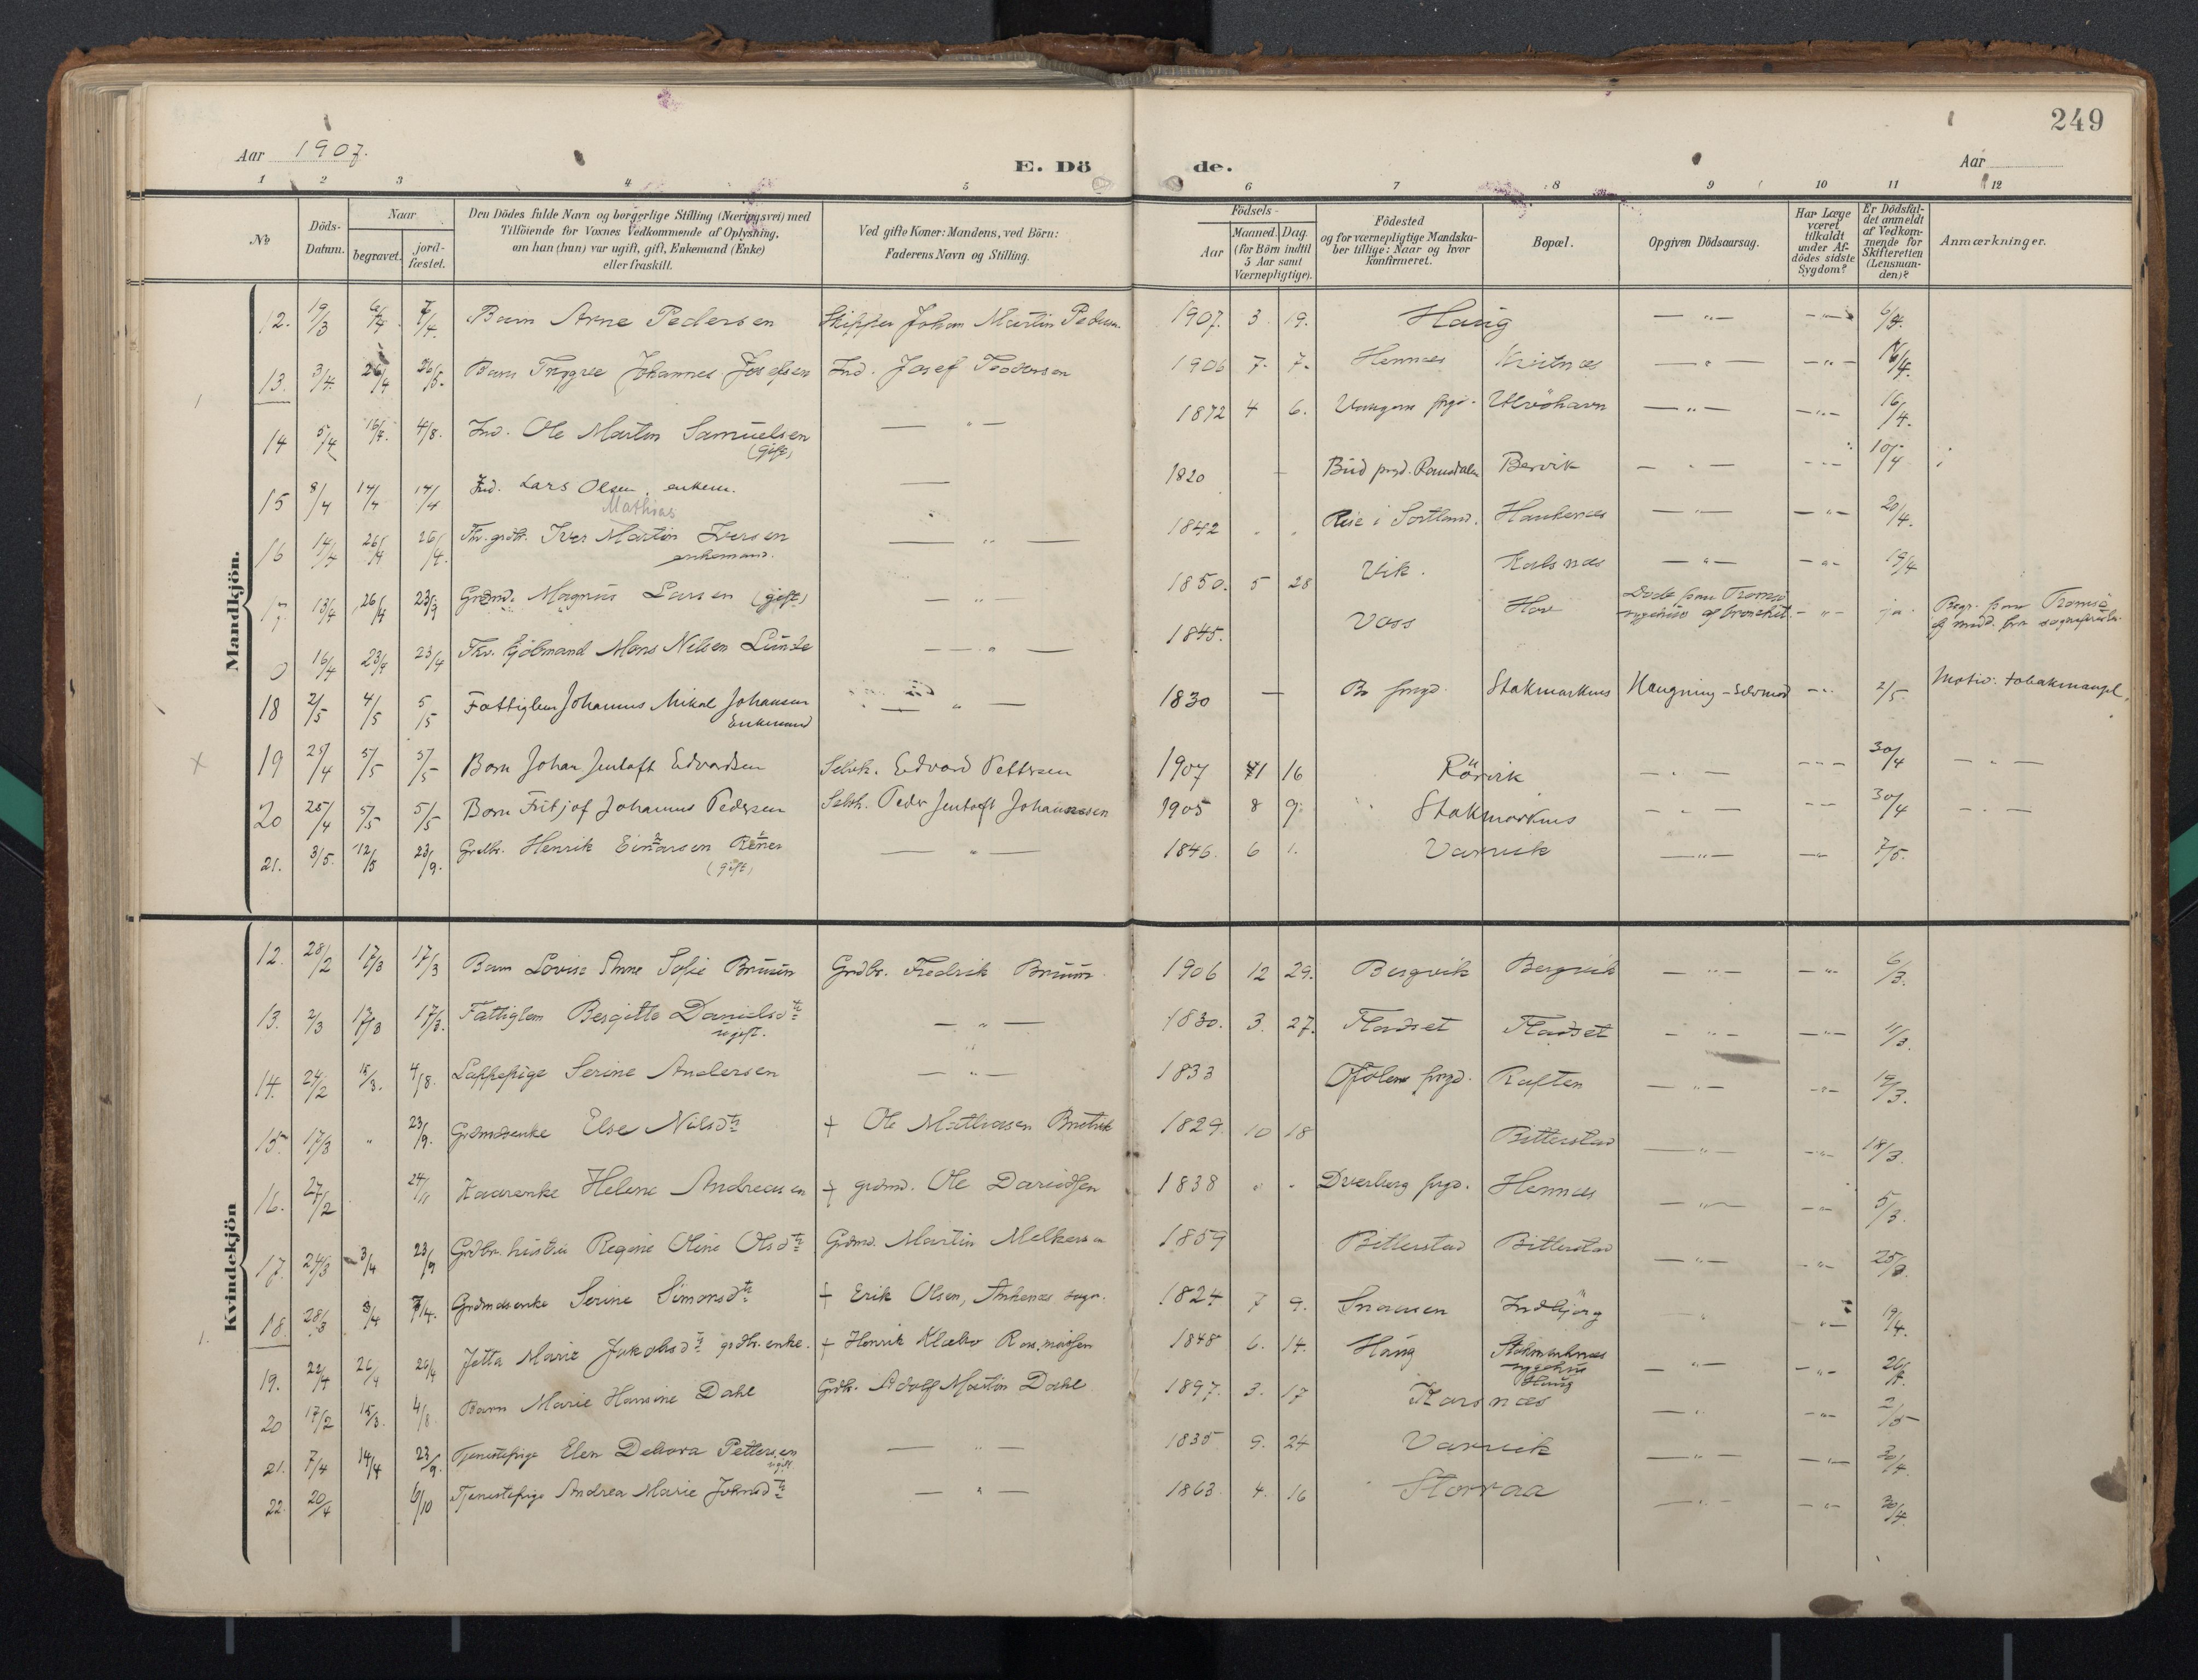 249
Aar 1907.
E. Dö de.
Aar
1 2 3 4 5 6 7 8 9 10 11 12
No
Döds-Datum.
Naar
begravet.
jord-fæstet.
Den Dödes fulde Navn og borgerlige Stilling (Næringsvei) med
Tilföiende for Voxnes Vedkommende af Oplysning,
om han (hun) var ugift, gift, Enkemand (Enke)
eller fraskilt.
Ved gifte Koner: Mandens, ved Börn:
Faderens Navn og Stilling.
Födsels-
Aar
Maaned. Dag.
(for Börn indtil
5 Aar samt
Værnepligtige).
Födested
og for værnepligtige Mandska-
ber tillige: Naar og hvor
Konfirmeret.
Bopæl.
Opgiven Dödsaarsag.
Har Læge
været
tilkaldt
under Af-
dödes sidste
Sygdom?
Er Dödsfal-
det anmeldt
af Vedkom-
mende for
Skifteretten
(Lensman-
den)?
Anmærkninger.
Mandkjön.
12. 19/3 7/4. Barn Arne Pedersen Skipper Johan Martin Peders. 1907. 3. 19. Haug — " — — " — 6/4.
13. 3/4 26/4 26/5. Barn Tryggve Johannes Josefsen Ind. Josef Teodorsen 1906 7. 7. Hennes Kvitnes — " — — " — 16/4.
14 5/4 16/4. 4/8. Ind. Ole Martin Samuelsen (gift) — " — 1872 4 6. Vangens prgd. Ulvöhavn — " — — " — 16/4.
15 8/4 14/4 14/4 Ind. Lars Olsen, enkem. — 1820 — Bud prgd. Romsdalen Bervik — " — — " — 10/4
Mathias
16 14/4 26/4 26/4. Fhv. grdbr. Iver Martin Iversen enkemand. — " — 1842 " " Reise i Sortland. Haukenes — " — — " — 20/4.
17 13/4 26/4 23/9 Grdmd. Magnus Larsen (gift) — " — 1850. 5 28 Vik. Kalsnes — " — — " — 19/4
0 16/4 23/4 23/4 Fhv. Mons Nilsen Lunde — " — 1845. Voss Hov Döde paa Tromsö sygehus af bronchit. — " — ja. Begr. paa Tromsö
18 2/5 4/5 5/5 Fattiglem Johannes Mikal Johansen Enkemand — " — 1830 — Bö prgd. Stokmarknes Hængning - Selvmord — " — 2/5. Motiv: tobakmangel.
19 25/4 5/5 5/5 Barn Johan Jentoft Edvardsen Selvk. Edvard Pettersen 1907 1 16 Rörvik — " — — " — 30/4 — " —
20 25/4 5/5 5/5 Barn Fritjof Johannes Pedersen Selvk. Peder Jentoft Johannessen 1905 8 9. Stokmarknes — " — — " — 30/4 — " —
21. 3/5. 12/5 23/9. Grdbr. Henrik Einarsen (gift) — " — 1846. 6 1. Varvik — " — — " — 7/5.
Kvindekjön
12. 28/2 17/3 17/3 Barn Lovise Anne Sofie Bruun Grdbr. Fredrik Bruun 1906 12 29. Bergvik Bergvik — " — — " — 6/3.
13. 2/3 17/3 17/3. Fattiglem Bergitte Danielsdtr ugift. — " — 1830. 3. 27. Fladset Fladset — " — — " — 11/3.
14. 24/2 15/3. 4/8. Lappepige Serine Andersen — " — 1833 Ofotens prgd. Raften — " — — " — 19/3.
15 17/3 " 23/9. Grdmdsenke Else Nilsdtr + Ole Mathiasen 1829. 10 18 Bitterstad — " — — " — 18/3.
16. 27/2 24/11 Kaarenke Helene Andreasen + grdmd. Ole Davidsen 1838 " " Dverberg prgd. Hennes — " — — " — 5/3.
17. 24/3 3/4 23/9 Grdbr. hustru Regine Oline Olsdtr Grdmd. Martin Melkersen 1859 Bitterstad Bitterstad — " — — " — 25/3.
18. 28/3 3/4 7/4. Grdmdsenke Serine Simonsdtr + Erik Olsen, Ankenes sogn. 1824 7 9. Indbjörg " — " — 19/4.
19. 22/4 26/4 26/4 Jetta Marie Jakobsdtr grdbr. enke. + Henrik Klæbo 1848 6. 14. Haug Stokmarknes sygehus Haug — " — — " — 26/4.
20 17/2 15/3. 4/8. Barn Marie Hansine Dahl Grdbr. Adolf Martin Dahl 1897. 3. 17 — " — — " — 2/5
21. 7/4 14/4 23/9. Tjenestepige Elen Debora Pettersen ugift. — " — 1835 9. 24 Varvik — " — — " — 30/4.
22. 20/4 6/10 Tjenestepige Andrea Marie Johnsdtr — " — 1863. 4. 16 Storraa — " — — " — 30/4.